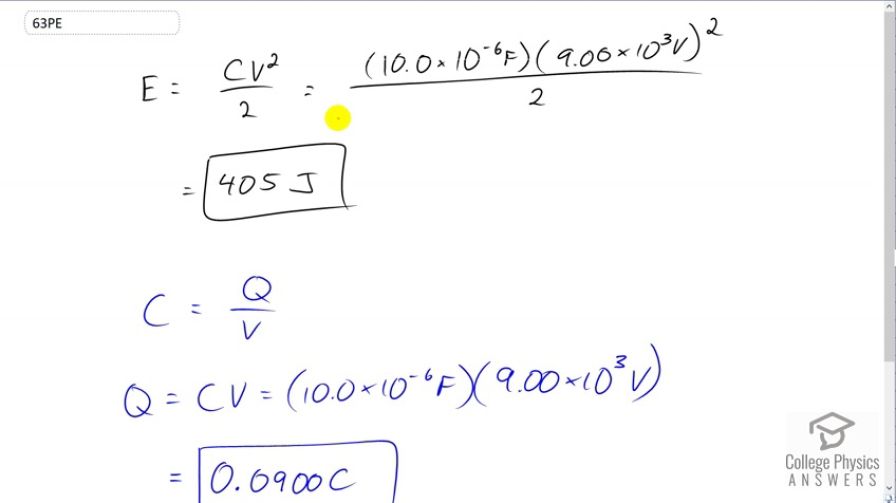 63PE
E = CV²/2 = (10.0 × 10⁻⁶F)(9.00 × 10³V)²/2
= 405 J
C = Q/V
Q = CV = (10.0 × 10⁻⁶F)(9.00 × 10³V)
= 0.0900C
College Physics
ANSWERS